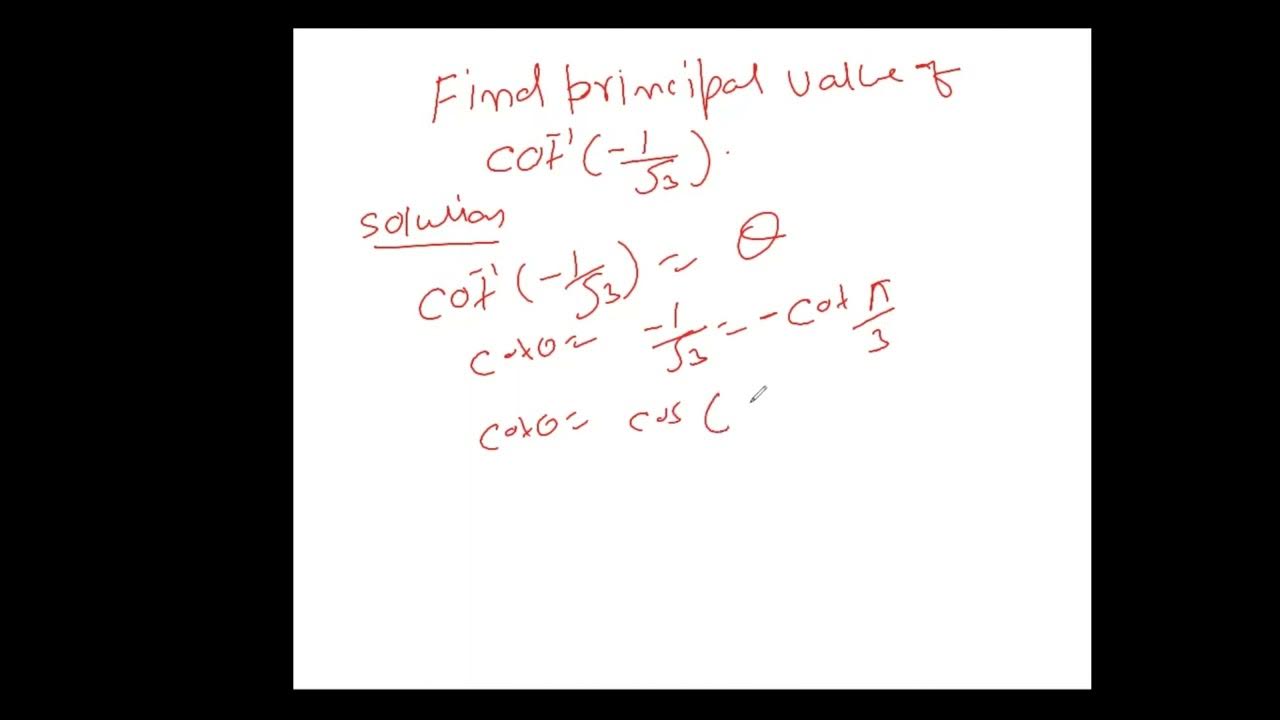 Find principal value of
cot⁻¹(-1/√3).
Solution
cot⁻¹(-1/√3) = θ
cotθ = -1/√3 = -cot π/3
cotθ = cos (